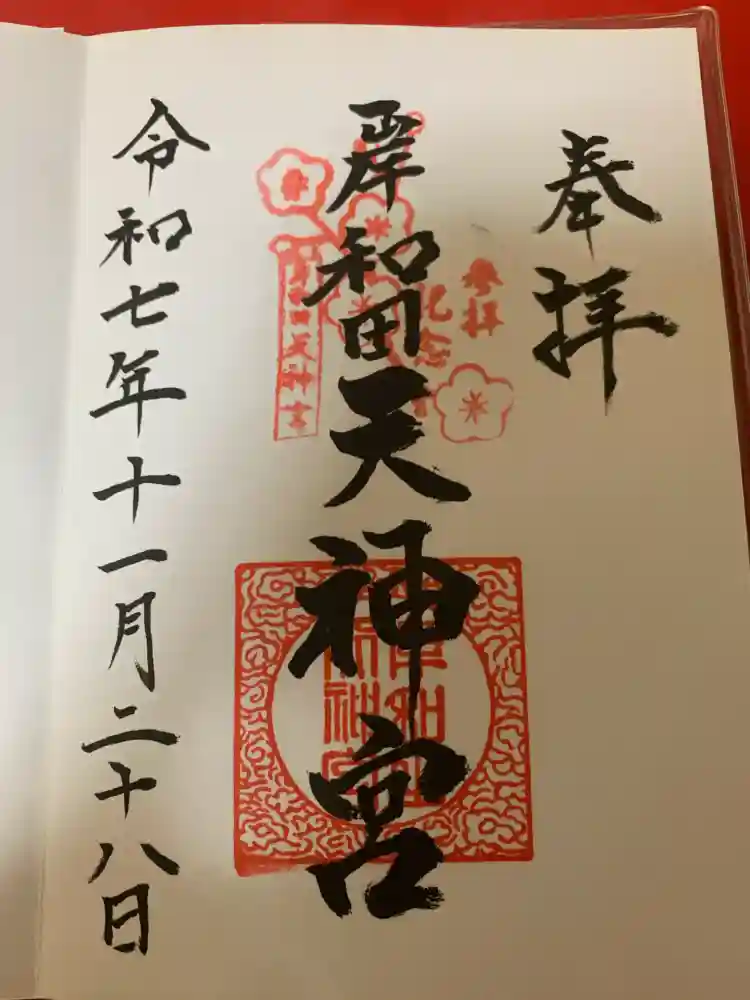 奉拝
参拝
記念
岸和田天神宮
岸和田天神宮
令和七年十一月二十八日